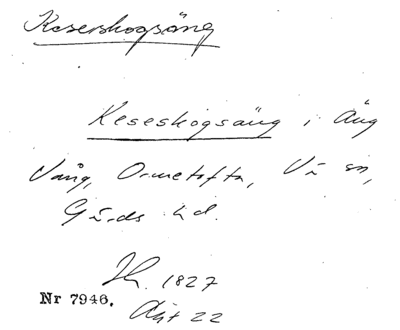 Keserskogsäng
Keseskogsäng i Äng
Vång, Ormetofta, Vä sn,
Gärds hd.
1827
Nr 7946.
Akt 22